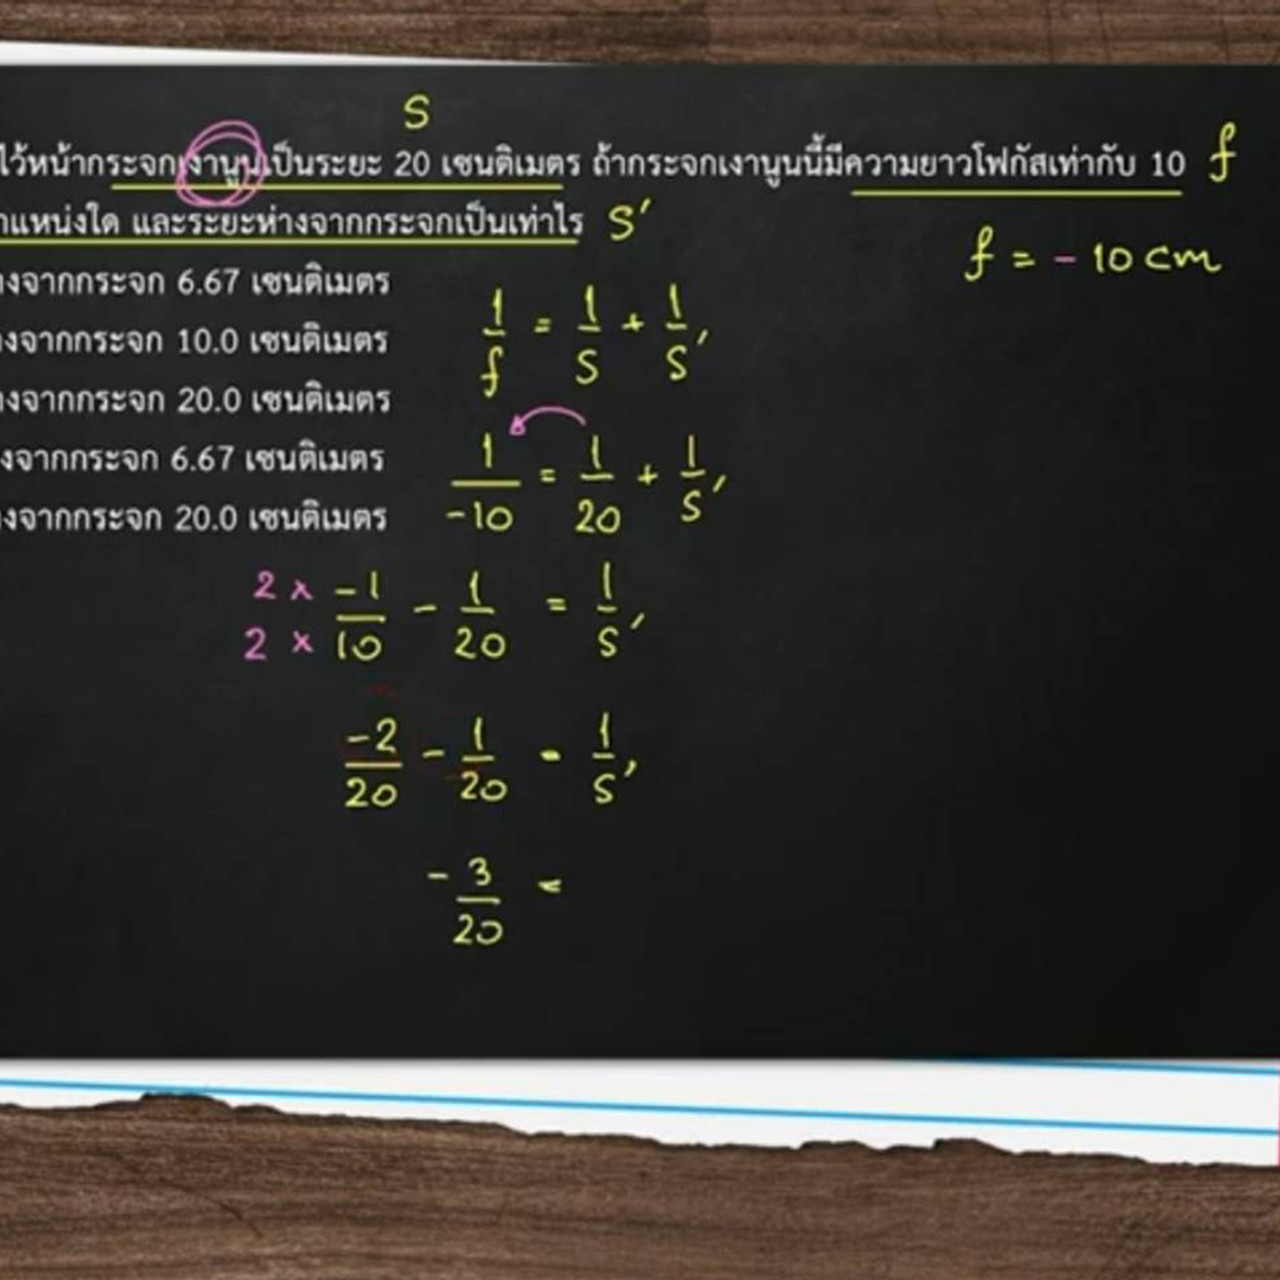 S
ไว้หน้ากระจกเงานูนเป็นระยะ 20 เซนติเมตร ถ้ากระจกเงานูนนี้มีความยาวโฟกัสเท่ากับ 10 f
และระยะห่างจากกระจกเป็นเท่าไร S′
f = - 10 cm
จากกระจก 6.67 เซนติเมตร
จากกระจก 10.0 เซนติเมตร
จากกระจก 20.0 เซนติเมตร
จากกระจก 6.67 เซนติเมตร
จากกระจก 20.0 เซนติเมตร
1/f = 1/S + 1/S′
1/-10 = 1/20 + 1/S′
2 × -1 / 2 × 10 - 1/20 = 1/S′
-2/20 - 1/20 = 1/S′
- 3/20 =